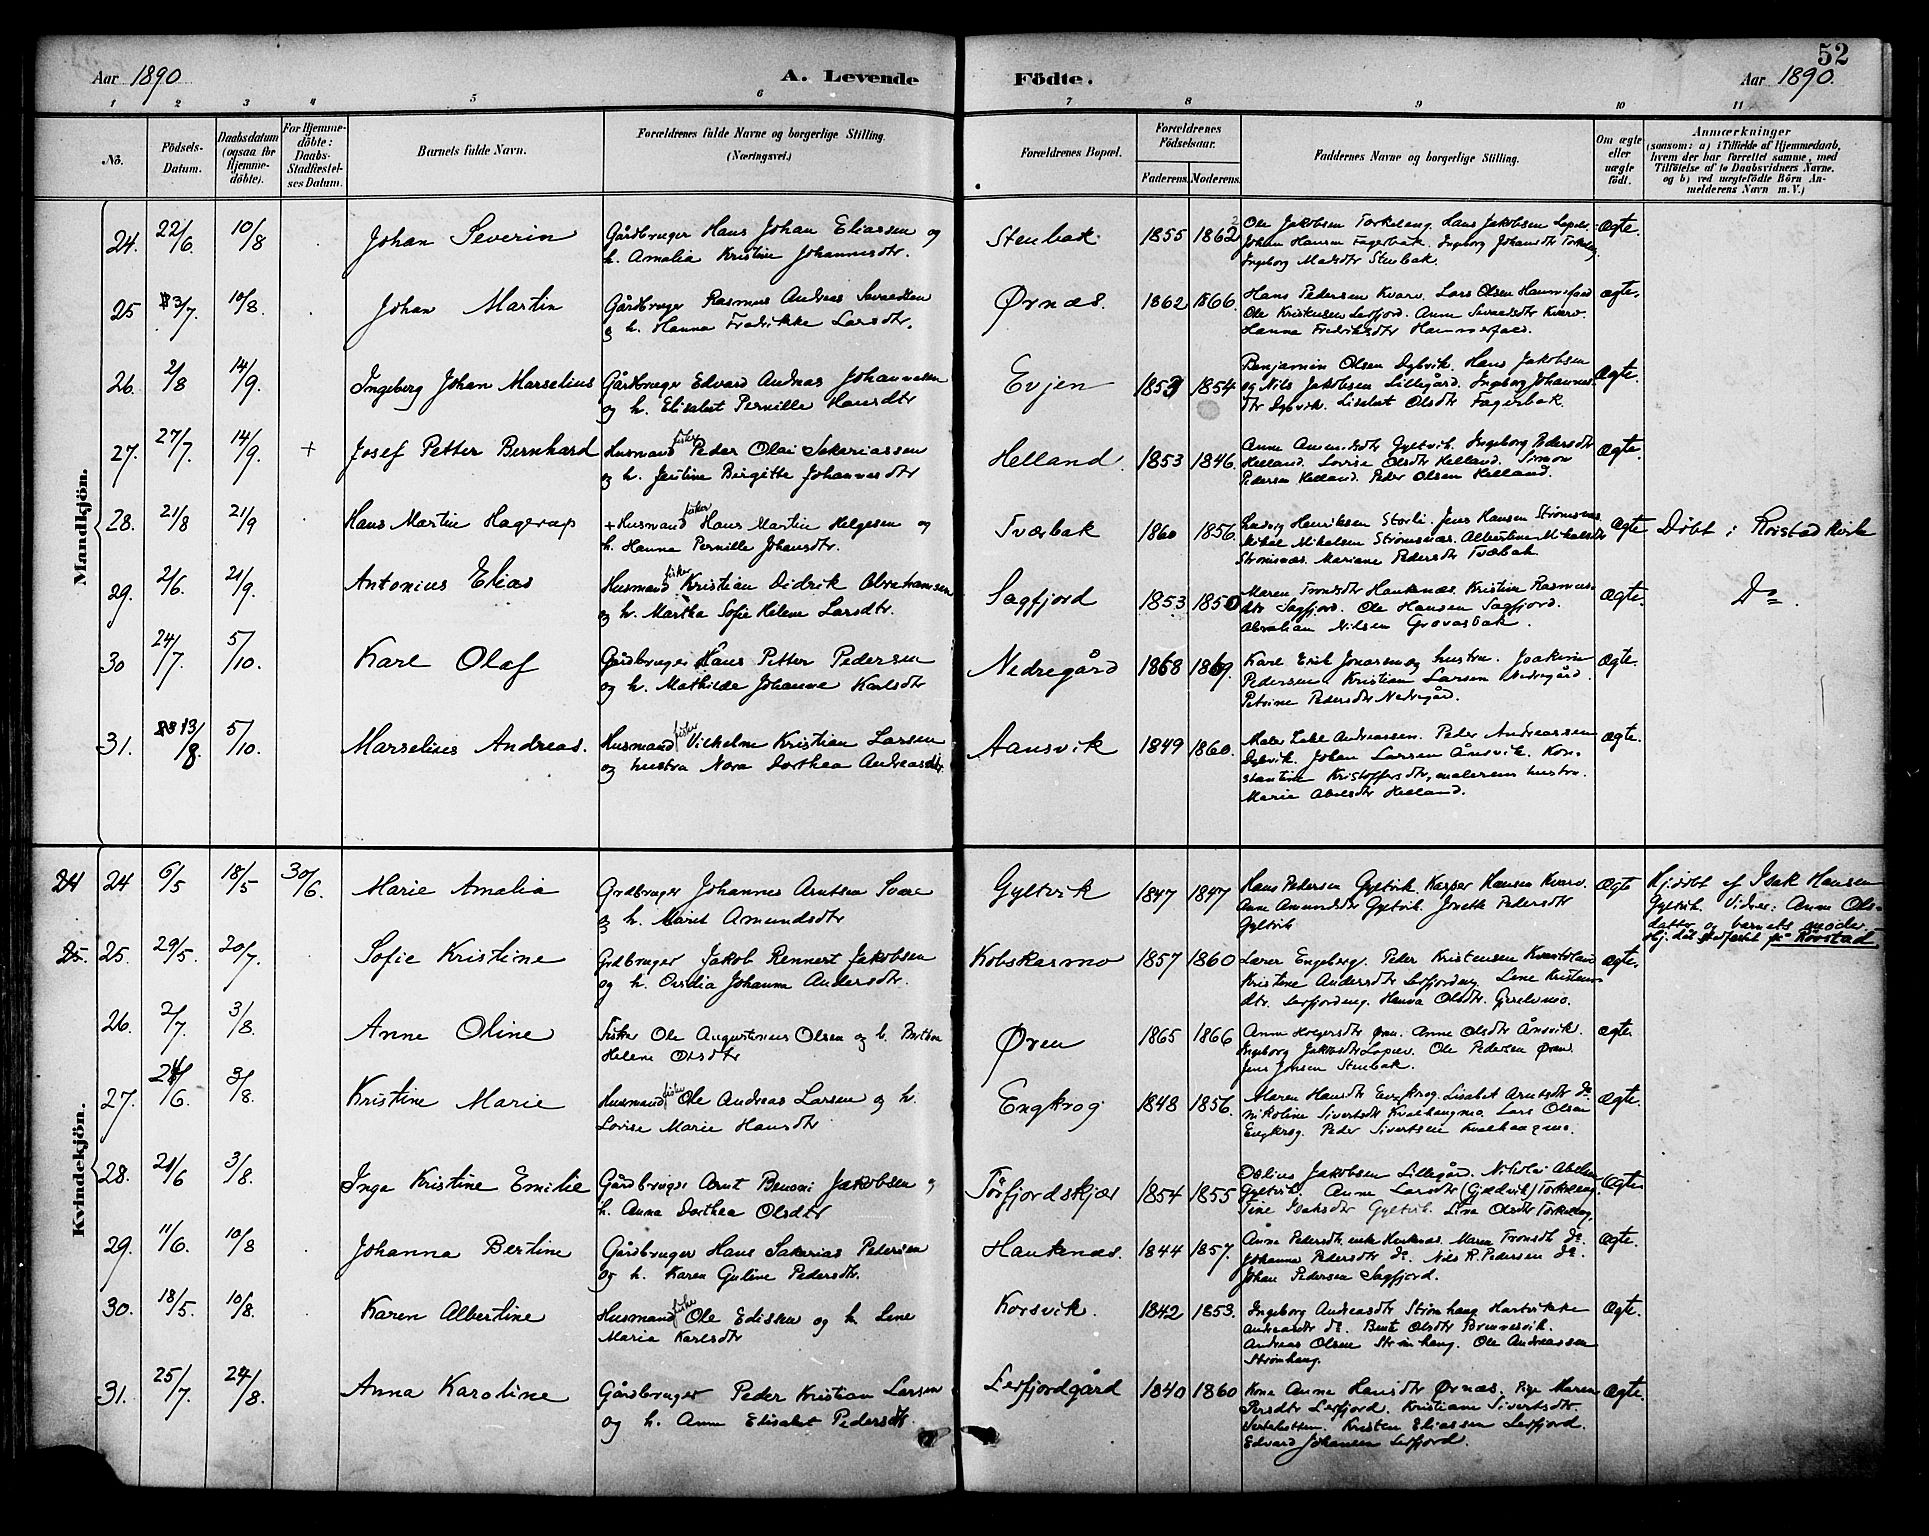 52
Aar 1890
A. Levende
Födte.
Aar 1890.
1 2 3 4 5 6 7 8 9 10 11
No.
Födsels-
Datum.
Daabsdatum
(ogsaa for
Hjemme-
döbte).
For Hjemme-
döbte:
Daabs-
Stadfæstel-
ses Datum.
Barnets fulde Navn.
Forældrenes fulde Navne og borgerlige Stilling.
(Næringsvei.)
Forældrenes Bopæl.
Forældrenes
Födselsaar.
Faderens. Moderens.
Faddernes Navne og borgerlige Stilling.
Om ægte
eller
uægte
födt.
Anmærkninger
(saasom: a) i Tilfælde af Hjemmedaab,
hvem der har forrettet samme, med
Tilföielse af to Daabsvidners Navne.
og b) ved uægtefödte Börn An-
melderens Navn m. V.)
Mandkjön.
24. 22/6 10/8 Johan Severin
Gårdbruger Hans Johan Eliassen og
h. Amalia Kristine Johannesdtr.
Stenbak 1855 1862
Ole Jakobsen Torkeleng. Hans Jakobsen
Johan Hansen Fagerbak. Ingeborg Johansdtr
Ingeborg Madsdtr Stenbak.
Ægte.
25 3/7. 10/8. Johan Martin
Gårdbruger Rasmus Andreas
og h. Hanna Fredrikke Larsdtr.
Ørnæs. 1862 1866.
Hans Pedersen Kvarv. Lars Olsen
Ole Kristensen Leifjord. Anne Kvarv.
Hanna Fredriksdtr
Ægte.
26. 2/8 14/9. Ingeberg Johan Marselius
Gårdbruger Edvard Andreas Johannessen
og h. Elisabet Pernille Hansdtr
Evjen 1853 1854
Benjamin Olsen Dybvik. Hans Jakobsen
og Nils Jakobsen Lillegård. Ingeborg Johannes
dtr Dybvik. Lisabet Olsdtr Fagerbak.
Ægte.
27. 27/7. 14/9. + Josef Petter Bernhard
Husmand fisker Peder Olai Sakeriassen
og h. Birgitte Johannesdtr
Helland. 1853 1846.
Anne Amundsdtr Gyltvik. Ingeborg Pedersdtr
Helland. Lovise Olsdtr Helland. Simon
Pedersen Helland. Peder Olsen Helland.
Ægte.
28. 21/8 21/9 Hans Martin Hagerup
+ Husmand fisker Hans Martin Helgesen og
h. Hanna Pernille Johansdtr.
Tværbak 1860 1856.
Ludvig Henriksen Storli. Jens Hansen Strømsnæs
Mikal Mikalsen Strømsnæs. Albertine Mikalsdtr
Strømsnæs. Mariane Pedersdtr Tværbak
Ægte Døbt i Rørstad Kirke
29. 2/6. 21/9. Antonius Elias
Husmand fisker Kristian Didrik Abrahamsen
og h. Martha Sofie Helene Larsdtr.
Sagfjord 1853 1850
Maren Tronsdtr Hauknæs. Kristine Rasmus-
dtr Sagfjord. Ole Hansen Sagfjord.
Abraham Nilsen Grovasbak.
Ægte. Do.
30 24/7. 5/10. Karl Olaf
Gårdbruger Hans Petter Pedersen
og h. Mathilde Johanne Karlsdtr
Nedregård 1868 1869.
Karl Erik Jonasen og hustru. Joakim
Pedersen Kristian Larsen Nedregård.
Petrine Pedersdtr Nedregård.
Ægte.
31. 13/8. 5/10. Marselius Andreas.
Husmand fisker Vilhelm Kristian Larsen
og hustru Nora Dorthea Andreasdtr.
Aansvik 1849 1860.
Maler Andreassen. Peder Andreassen
Dybvik. Johan Larsen Ånsvik. Kon-
stantine Kristoffersdtr, malerens hustru.
Marie Abelsdtr Helland.
Ægte.
Kvindekjön.
24 24 6/5 18/5 30/6. Marie Amalia
Grdbruger Johannes Arntsen Svare
og h. Maret Amundsdtr
Gyltvik 1847 1847
Hans Pedersen Gyltvik. Kasper Hansen Kvarv.
Ane Amundsdtr Gyltvik. Jonette Pedersdtr
Gyltvik
Ægte
Hjdøbt af Isak Hansen
Gyltvik. Vidner: Anne Ols-
datter og barnets moder.
Hj. dåb stadfæstet på Rørstad
25. 25. 29/5. 20/7. Sofie Kristine
Grdbruger Jakob Rennert Jakobsen
og h. Ovidia Johanna Andersdtr.
Kobskarmo 1857 1860
Lærer Engeberg. Peder Kristensen
Kristine Andersdtr Leifjordeng. Lene Kristens
dtr. Leifjordeng. Hanna Olsdtr.
Ægte.
26. 2/7. 3/8. Anne Oline
Fisker Ole Augustinus Olsen og h. Bertine
Helene Olsdtr
Øren 1865 1866
Anne Holgersdtr Øren. Anne Olsdtr Ånsvik.
Ingeborg Jakobsdtr. Ole Pedersen Øren.
Jens Jensen Stenbak.
Ægte.
27. 24/6. 3/8. Kristine Marie
Husmand fisker Ole Andreas Larsen og h.
Lovise Marie Hansdtr
Engkrog 1848 1856.
Maren Hansdtr Engkrog. Lisabet Arntsdtr do
Nikoline Sivertsdtr Kvalhaugmo. Lars Olsen
Engkrog. Peder Sivertsen Kvalhaugmo.
Ægte.
28. 21/6 3/8. Inga Kristine Emilie
Gårdbruger Arnt Benoni Jakobsen og
h. Anna Dorthea Olsdtr
Tørfjordskjær 1854 1855
Jakobsen Lillegård. Nikolai Abelsen
Gyltvik. Anne Larsdtr (Gjædvik) Torkeleng.
Tine Isaksdtr Gyltvik. Lina Olsdtr Torkeleng.
Ægte
29. 11/6. 10/8 Johanna Bertine
Gårdbruger Hans Sakerias Pedersen
og h. Karen Guline Pedersdtr.
Hauknæs. 1844 1857.
Åne Pedersdtr. enke Hauknæs. Maren Tronsdtr do.
Johanna Pedersdtr do. Nils R. Pedersen do.
Johan Pedersen Sagfjord.
Ægte.
30. 18/5. 10/8. Karen Albertine
Husmand fisker Ole Edissen og h. Lene
Maria Karlsdtr
Korsvik. 1842 1853.
Ingeborg Andreasdtr Strømhaug Hartvikke
Andreasdtr do. Berit Olsdtr Brennesvik.
Andreas Olsen Strømhaug. Ole Andreassen
Strømhaug.
Ægte.
31. 25/7. 24/8. Anna Karoline
Gårdbruger Peder Kristian Larsen
og h. Anne Elisabet Pedersdtr.
Leifjordgård 1840 1860
Kone Anne Hansdtr Ørnæs. Pige Maren
Persdtr Leifjord. Kristiane Sivertsdtr.
Kristen Eliassen Leifjord.
Edvard Johansen Leifjord.
Ægte.